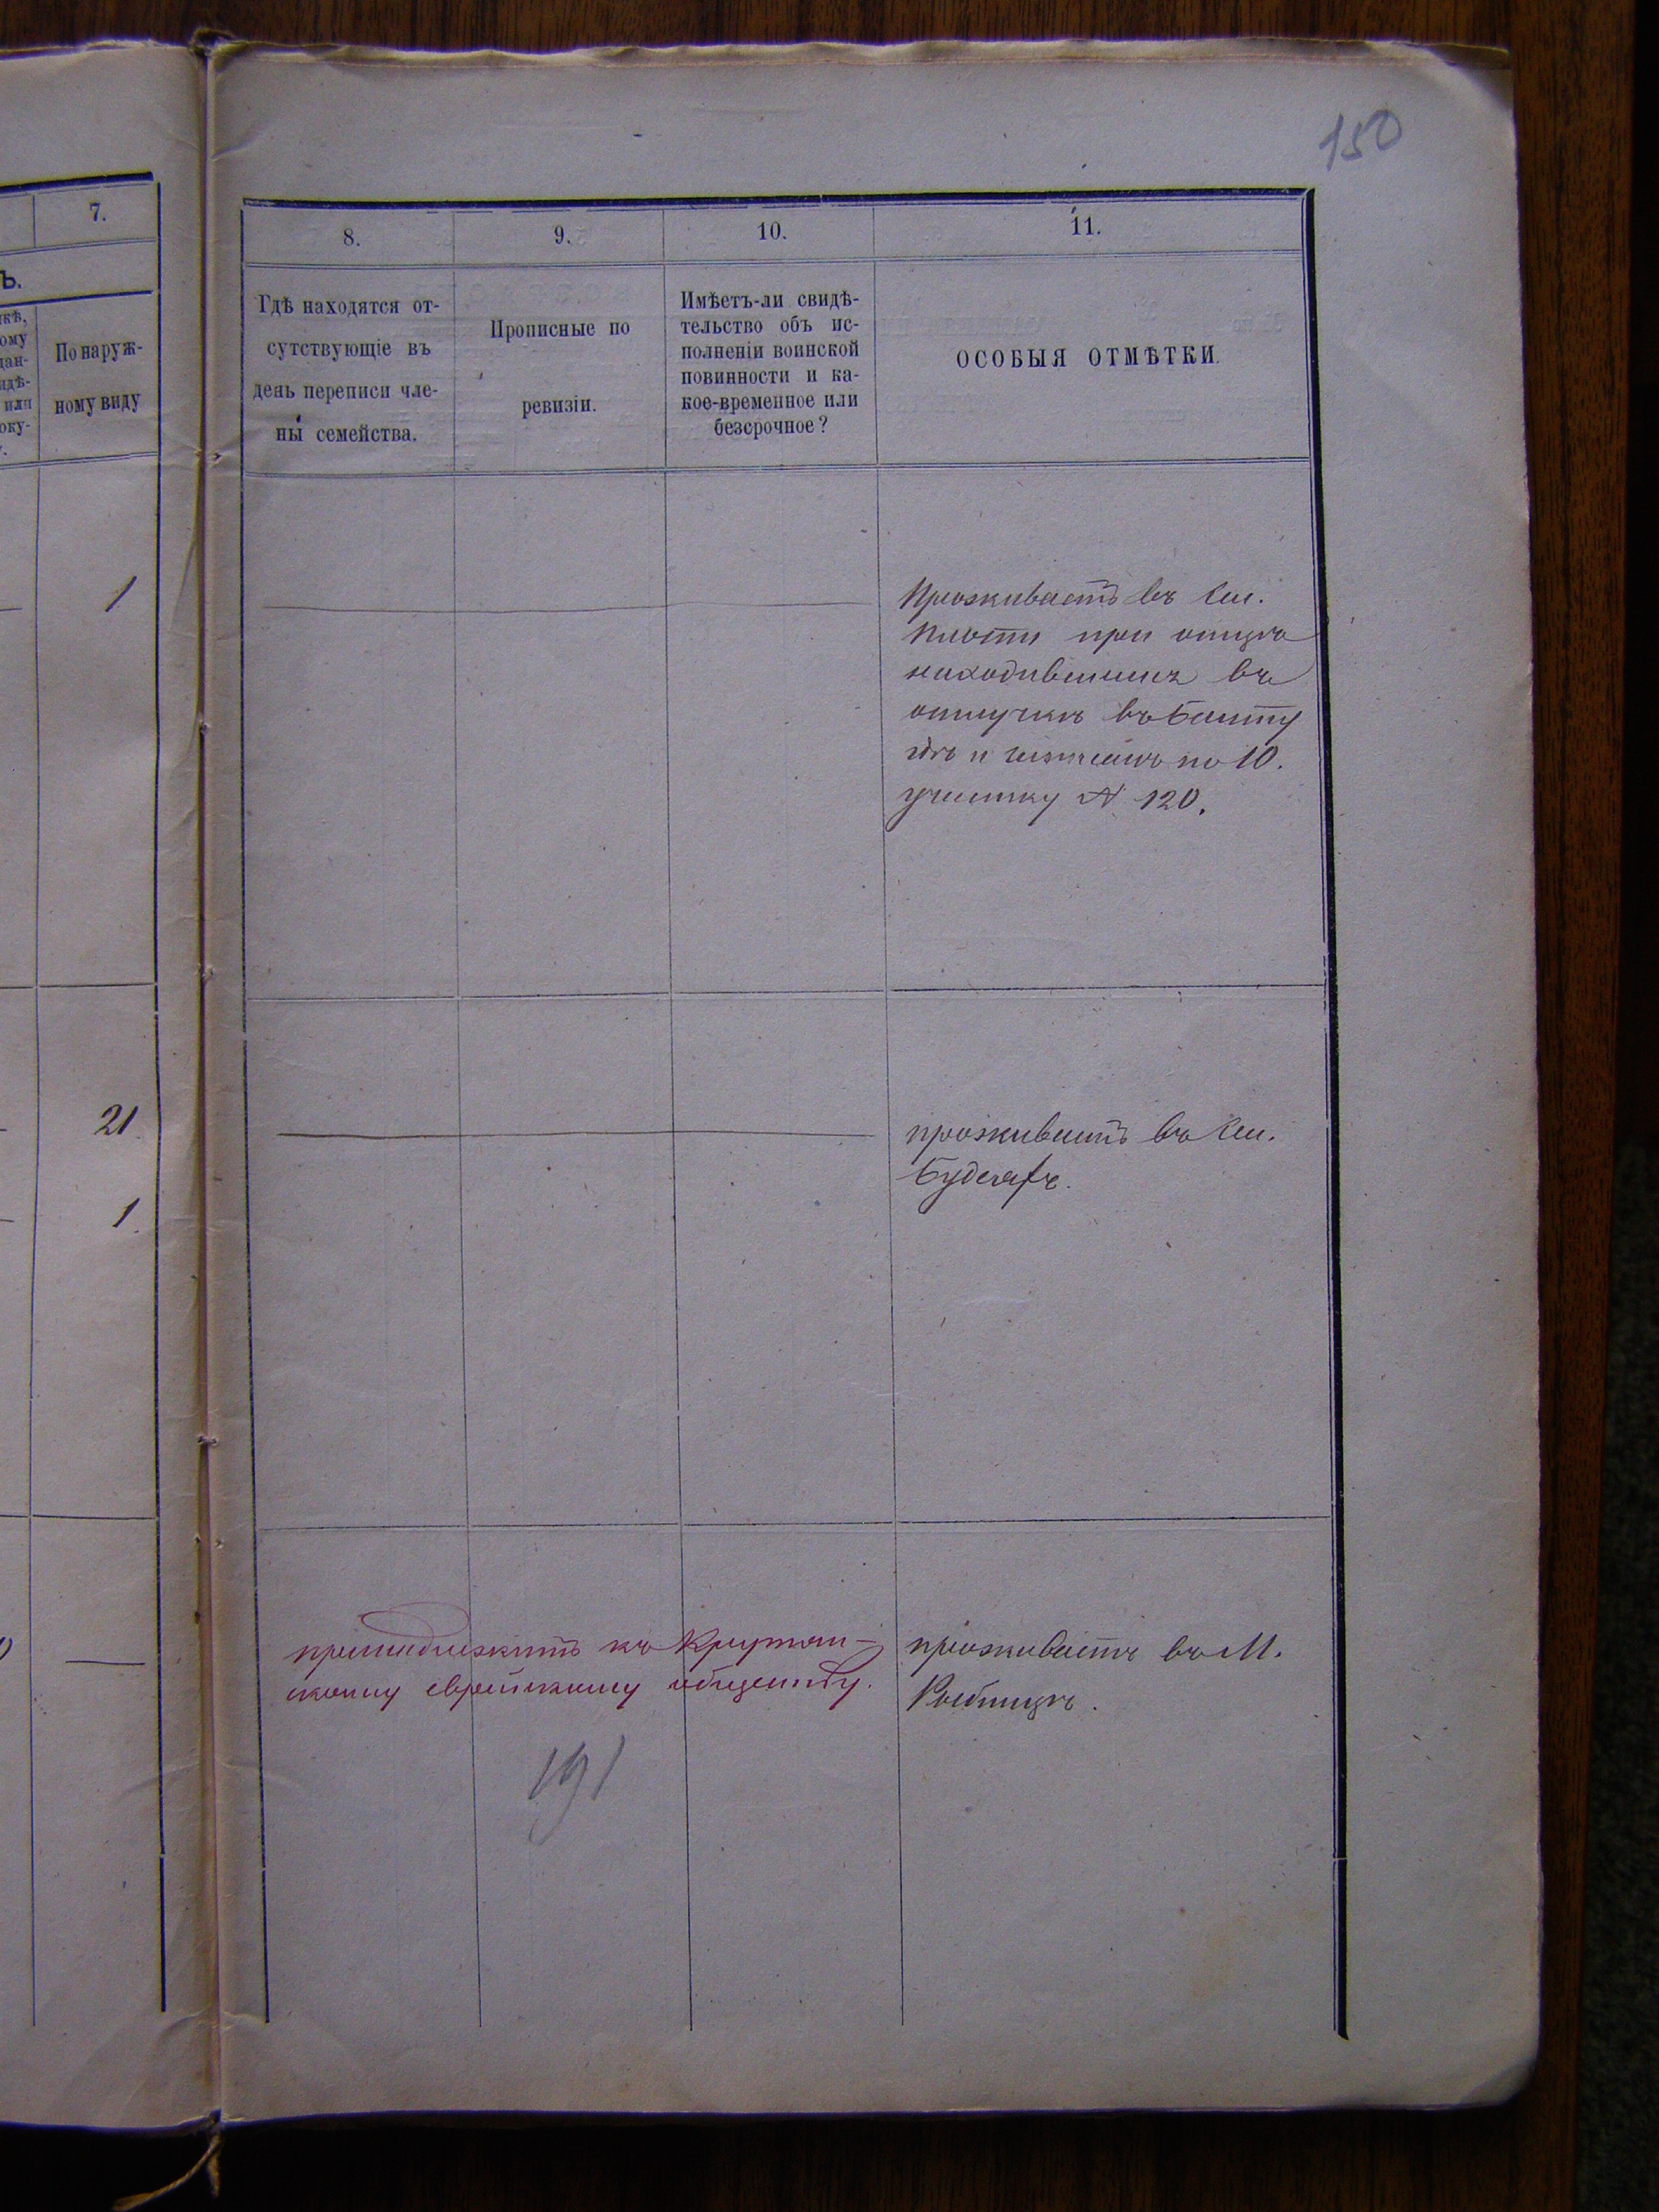 150
7.
ъ.
По наруж-
ному виду
1
21
1
8.
9.
10.
11.
Гдѣ находятся от-
сутствующіе въ
день переписи чле-
ны семейства.
Прописные по
ревизіи.
Имѣетъ-ли свидѣ-
тельство объ ис-
полненіи воинской
повинности и ка-
кое-временное или
безсрочное?
ОСОБЫЯ ОТМѢТКИ.
Проживаетъ въ Сел.
при отцѣ
находившемся въ
отлучкѣ въ Балту
гдѣ и по 10.
участку № 120.
проживаетъ въ Сел.
принадлежитъ къ Крутян-
скому еврейскому обществу.
проживаетъ въ М.
Рыбницѣ.
191